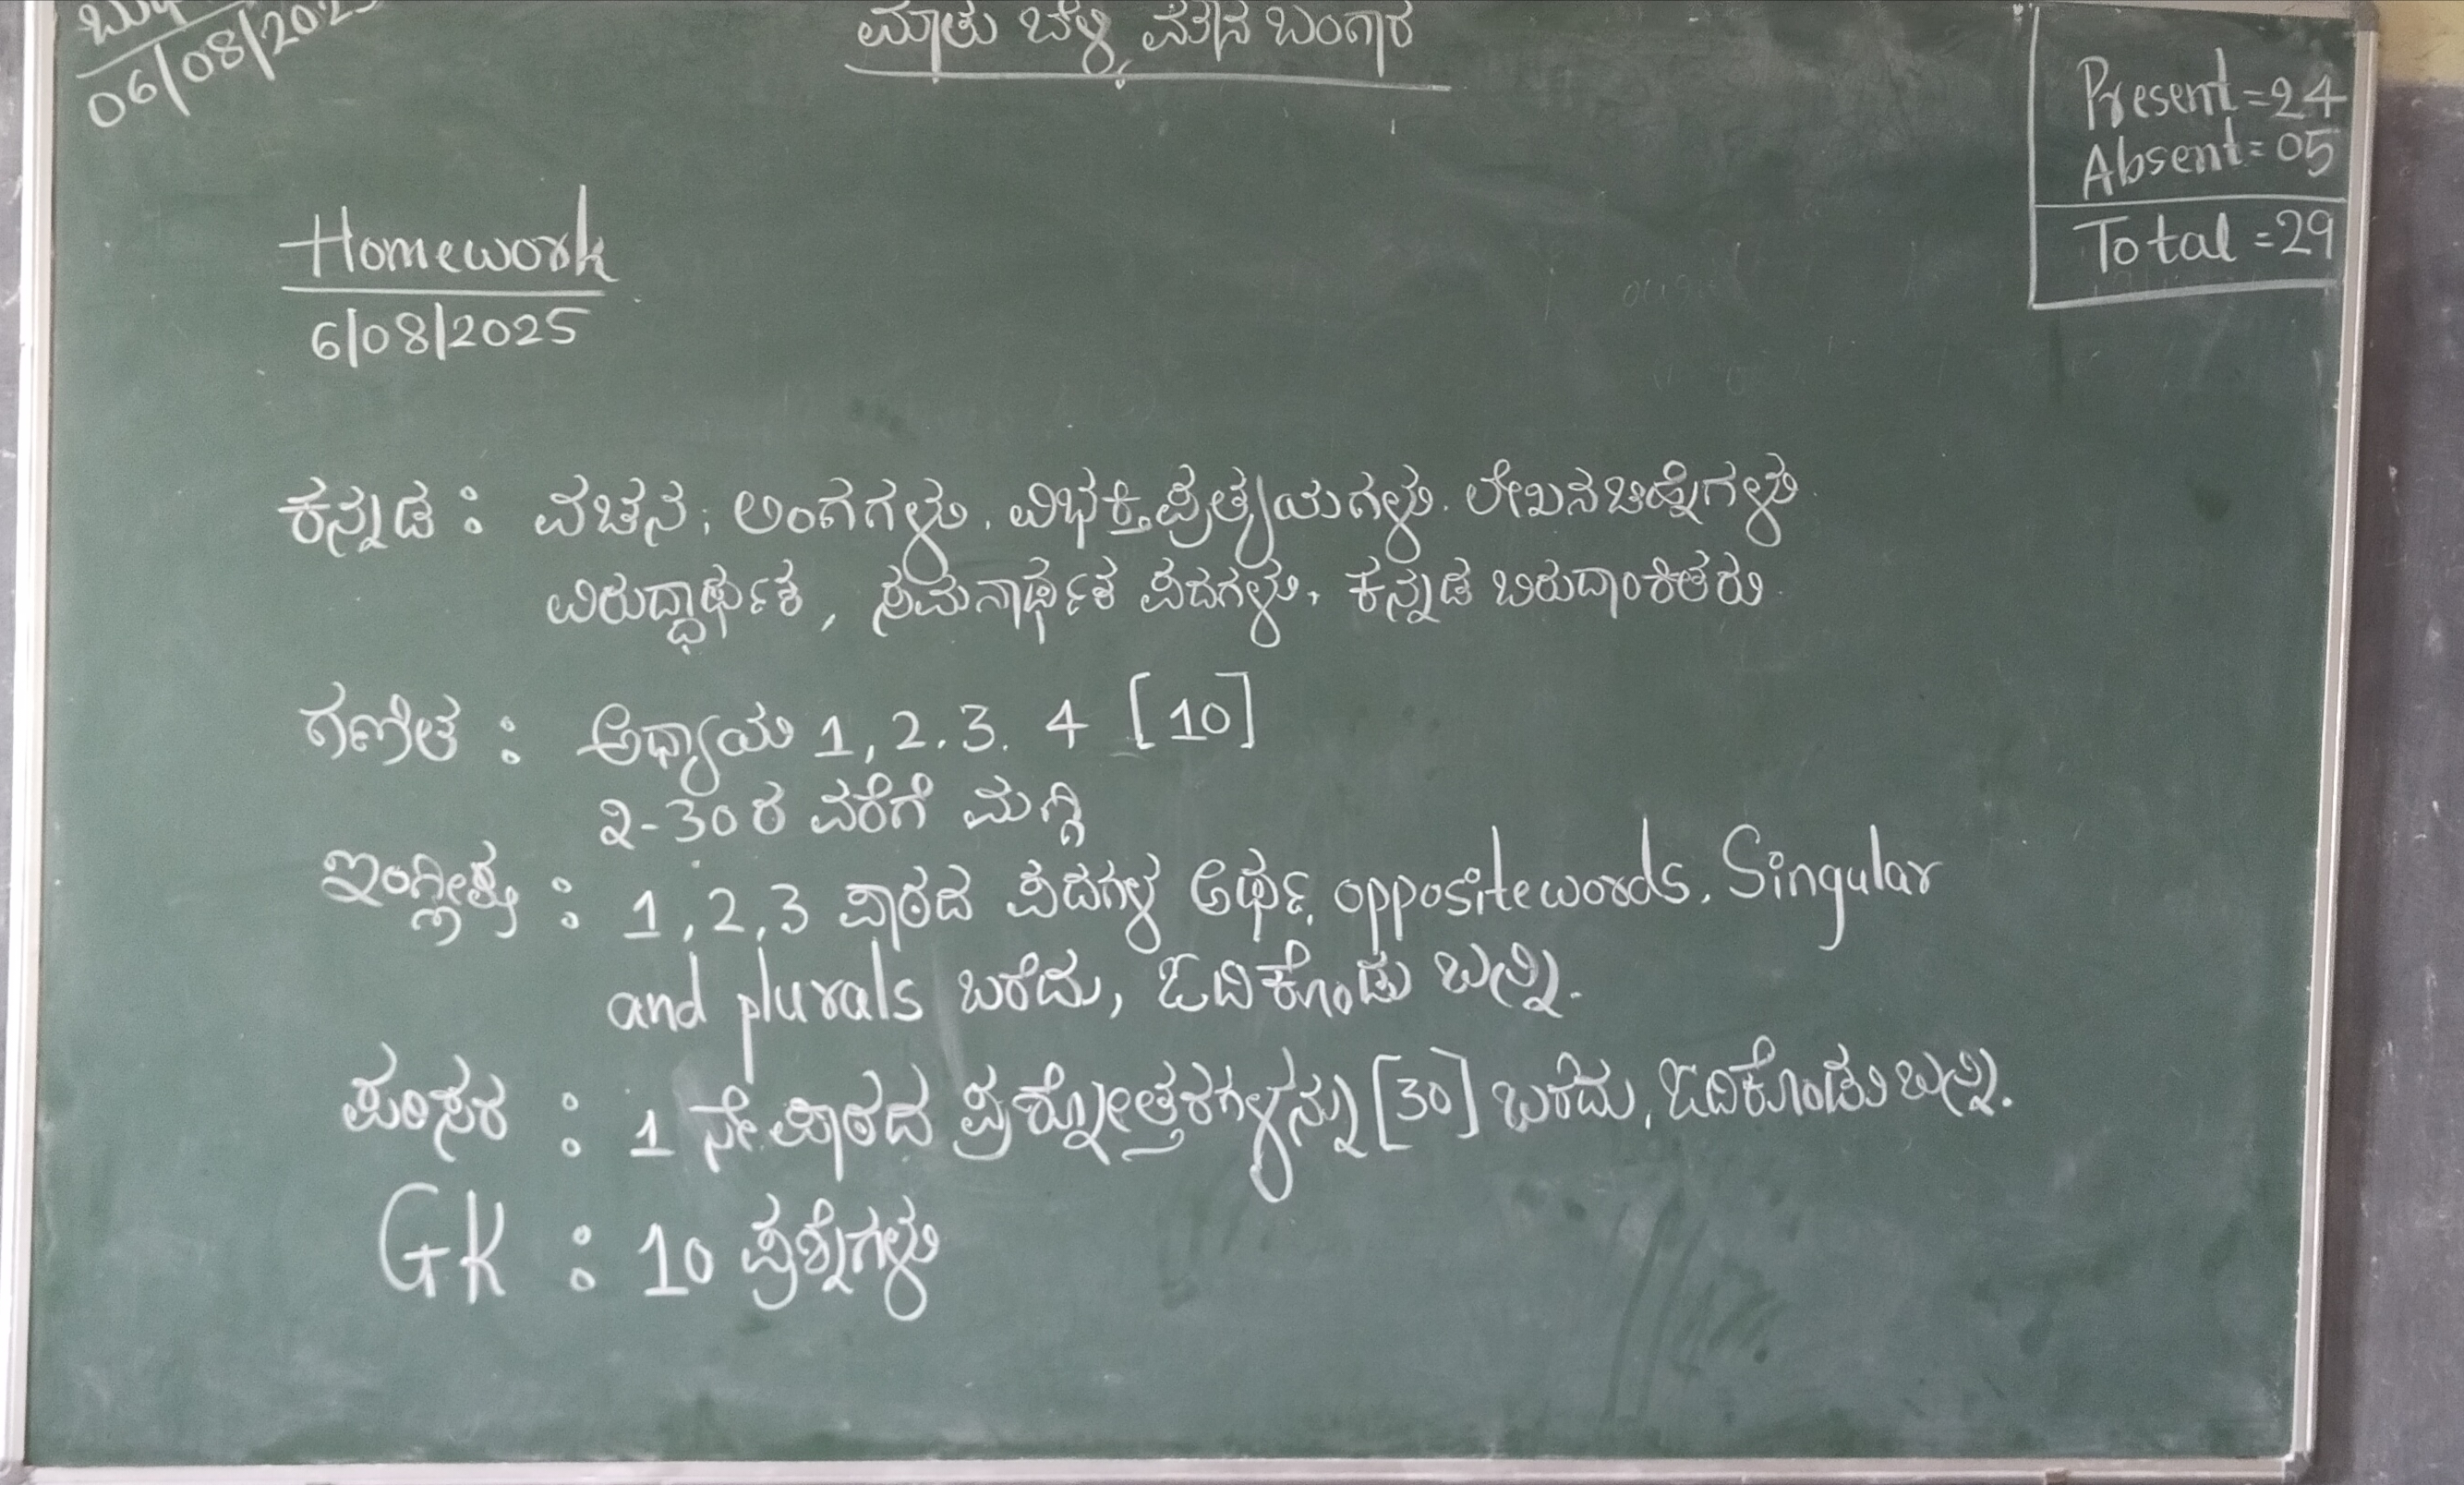 06/08/2025
ಮಾತು ಬೆಳ್ಳಿ ಮೌನ ಬಂಗಾರ
Present=24
Absent=05
Total=29
Homework
6/08/2025
ಕನ್ನಡ : ವಚನ, ಅಂಗಗಳು, ವಿಭಕ್ತಿ ಪ್ರತ್ಯಯಗಳು. ಲೇಖನ ಚಿಹ್ನೆಗಳು.
ವಿರುದ್ಧಾರ್ಥಕ, ಸಮನಾರ್ಥಕ ಪದಗಳು, ಕನ್ನಡ ಬಿರುದಾಂಕಿತರು.
ಗಣಿತ : ಅಧ್ಯಾಯ 1, 2. 3. 4 [10]
೨-30ರ ವರೆಗೆ ಮಗ್ಗಿ
ಇಂಗ್ಲೀಷ್ : 1, 2, 3 ಪಾಠದ ಪದಗಳ ಅರ್ಥ, opposite words. Singular
and plurals ಬರೆದು, ಓದಿಕೊಂಡು ಬನ್ನಿ.
ಪರಿಸರ : 1 ನೇ ಪಾಠದ ಪ್ರಶ್ನೋತ್ತರಗಳನ್ನು [30] ಬರೆದು, ಓದಿಕೊಂಡು ಬನ್ನಿ.
GK : 10 ಪ್ರಶ್ನೆಗಳು